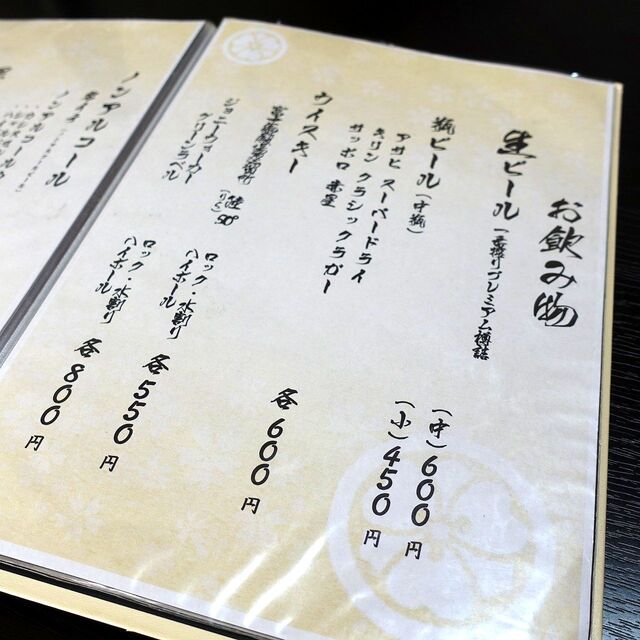 お飲み物
生ビール 一番搾りプレミアム樽詰
(中) 600円
(小) 450円
瓶ビール (中瓶)
アサヒ スーパードライ
キリン クラシックラガー
サッポロ 赤星
各 600円
ウイスキー
富士御殿場蒸溜所
(りく) 陸 50°
ロック・水割り
ハイボール
各 550円
ジョニーウォーカー
グリーンラベル
ロック・水割り
ハイボール
各 800円
ノンアルコール